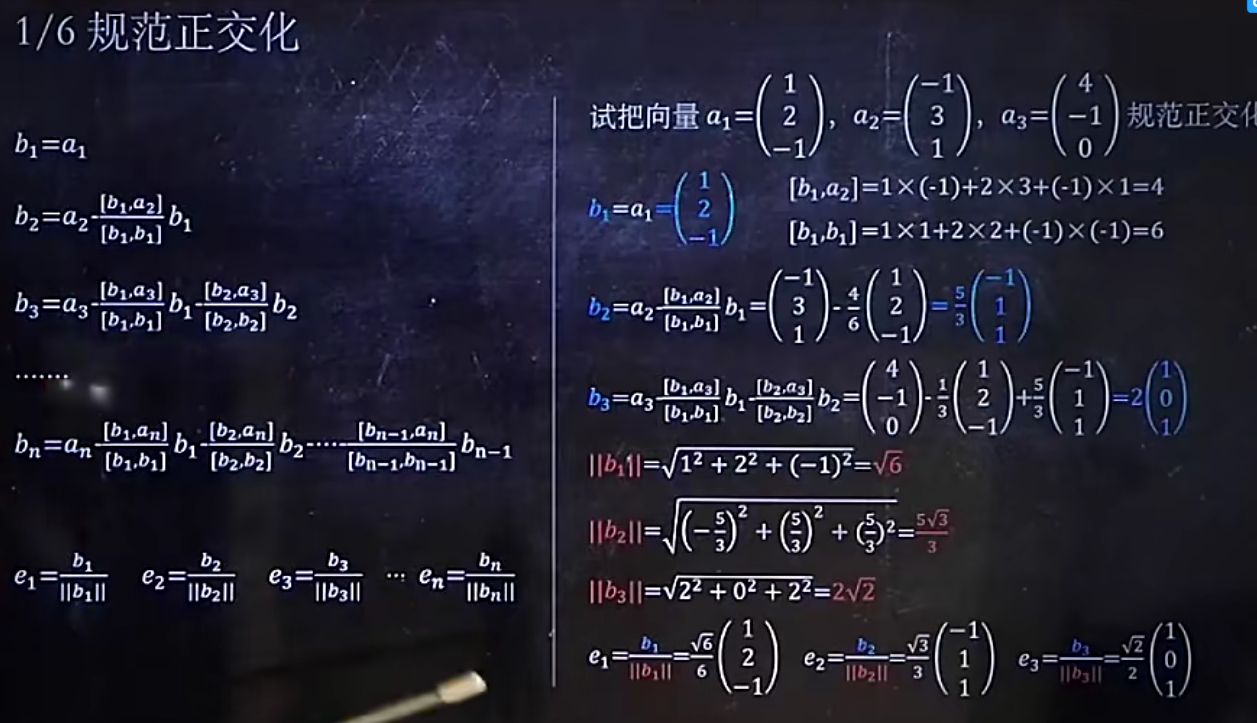 1/6 规范正交化
b₁=a₁
b₂=a₂-[b₁,a₂]/[b₁,b₁] b₁
b₃=a₃-[b₁,a₃]/[b₁,b₁] b₁-[b₂,a₃]/[b₂,b₂] b₂
.......
bₙ=aₙ-[b₁,aₙ]/[b₁,b₁] b₁-[b₂,aₙ]/[b₂,b₂] b₂-·····-[bₙ₋₁,aₙ]/[bₙ₋₁,bₙ₋₁] bₙ₋₁
e₁=b₁/||b₁|| e₂=b₂/||b₂|| e₃=b₃/||b₃|| ··· eₙ=bₙ/||bₙ||
试把向量 a₁=(1 2 −1), a₂=(−1 3 1), a₃=(4 −1 0) 规范正交化
b₁=a₁=(1 2 −1) [b₁,a₂]=1×(-1)+2×3+(-1)×1=4
[b₁,b₁]=1×1+2×2+(-1)×(-1)=6
b₂=a₂-[b₁,a₂]/[b₁,b₁] b₁=(−1 3 1)-4/6(1 2 −1)=5/3(−1 1 1)
b₃=a₃-[b₁,a₃]/[b₁,b₁] b₁-[b₂,a₃]/[b₂,b₂] b₂=(4 −1 0)-1/3(1 2 −1)+5/3(−1 1 1)=2(1 0 1)
||b₁||=√(1² + 2² + (−1)²)=√6
||b₂||=√((−5/3)² + (5/3)² + (5/3)²)=5√3/3
||b₃||=√(2² + 0² + 2²)=2√2
e₁=b₁/||b₁||=√6/6(1 2 −1) e₂=b₂/||b₂||=√3/3(−1 1 1) e₃=b₃/||b₃||=√2/2(1 0 1)